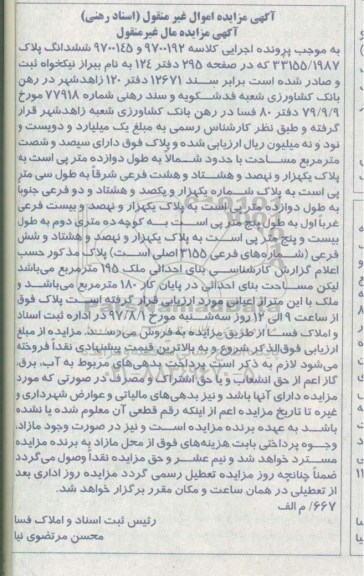 آگهی مزایده اموال غیر منقول (اسناد رهنی)
آگهی مزایده مال غیرمنقول
به موجب پرونده اجرایی کلاسه ۹۷۰۰۱۹۲ و ۹۷۰۰۱۴۵ ششدانگ پلاک
۳۳۱۵۵/۱۹۸۷ که در صفحه ۲۹۵ دفتر ۱۲۴ به نام بیراز نیکخواه ثبت
و صادر شده است برابر سند ۱۲۶۷۱ دفتر ۱۲۰ زاهدشهر در رهن
بانک کشاورزی شعبه فدشکویه و سند رهنی شماره ۷۷۹۱۸ مورخ
۷۹/۹/۹ دفتر ۸۰ فسا در رهن بانک کشاورزی شعبه زاهدشهر قرار
گرفته و طبق نظر کارشناس رسمی به مبلغ یک میلیارد و دویست و
نود و نه میلیون ریال ارزیابی شده و پلاک فوق دارای سیصد و شصت
مترمربع مساحت با حدود شمالاً به طول دوازده متر پی است به
پلاک یکهزار و نهصد و هشتاد و هشت فرعی شرقاً به طول سی متر
پی است به پلاک شماره یکهزار و یکصد و هشتاد و دو فرعی جنوباً
به طول دوازده متر پی است به پلاک یکهزار و نهصد و بیست فرعی
غرباً اول به طول پنج متر پی است به کوچه ده متری دوم به طول
بیست و پنج متر پی است به پلاک یکهزار و نهصد و هشتاد و شش
فرعی (شماره‌های فرعی ۳۱۵۵ اصلی است) پلاک مذکور حسب
اعلام گزارش کارشناسی بنای احداثی ملک ۱۹۵ مترمربع می‌باشد
لیکن مساحت بنای احداثی در پایان کار ۱۸۰ مترمربع می‌باشد و
ملک با این متراژ اعیانی مورد ارزیابی قرار گرفته است پلاک فوق
از ساعت ۹ الی ۱۲ روز سه‌شنبه مورخ ۹۷/۸/۱ در اداره ثبت اسناد
و املاک فسا از طریق مزایده به فروش می‌رسد. مزایده از مبلغ
ارزیابی فوق‌الذکر شروع و به بالاترین قیمت پیشنهادی نقداً فروخته
می‌شود لازم به ذکر است پرداخت بدهی‌های مربوط به آب، برق،
گاز اعم از حق انشعاب و یا حق اشتراک و مصرف در صورتی که مورد
مزایده دارای آنها باشد و نیز بدهی‌های مالیاتی و عوارض شهرداری و
غیره تا تاریخ مزایده اعم از اینکه رقم قطعی آن معلوم شده یا نشده
باشد به عهده برنده مزایده است و نیز در صورت وجود مازاد،
وجوه پرداختی بابت هزینه‌های فوق از محل مازاد به برنده مزایده
مسترد خواهد شد و نیم عشر و حق مزایده نقداً وصول می‌گردد
ضمناً چنانچه روز مزایده تعطیل رسمی گردد مزایده روز اداری بعد
از تعطیلی در همان ساعت و مکان مقرر برگزار خواهد شد.
۶۶۷/ م الف
رئیس ثبت اسناد و املاک فسا
محسن مرتضوی نیا